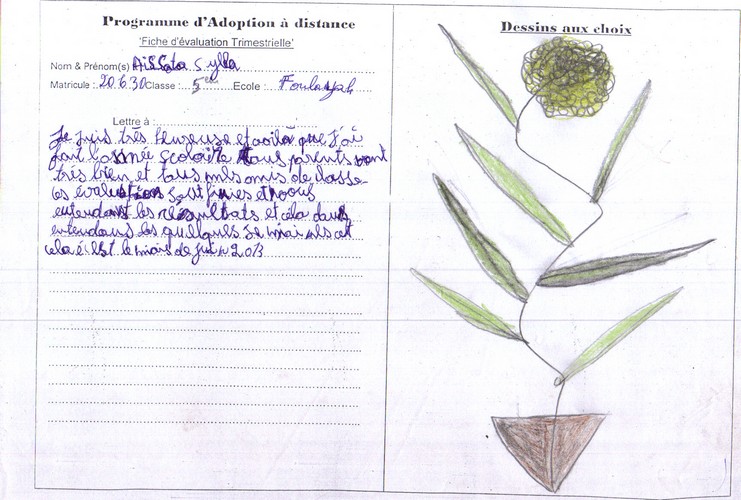 Programme d'Adoption à distance
'Fiche d'évaluation Trimestrielle'
Nom & Prénom(s) Aissata Sylla
Matricule : 20630 Classe : 5em Ecole : Foulayah
Lettre à :
Je suis très heureuse et voilà que j'ai
fait l'année scolaire tous parents vont
très bien et tous mes amis de classe
les évaluations sont finies et nous
entendant les résultats et cela dans
entendans les quelques
cela est le mois de juin 2013
Dessins aux choix